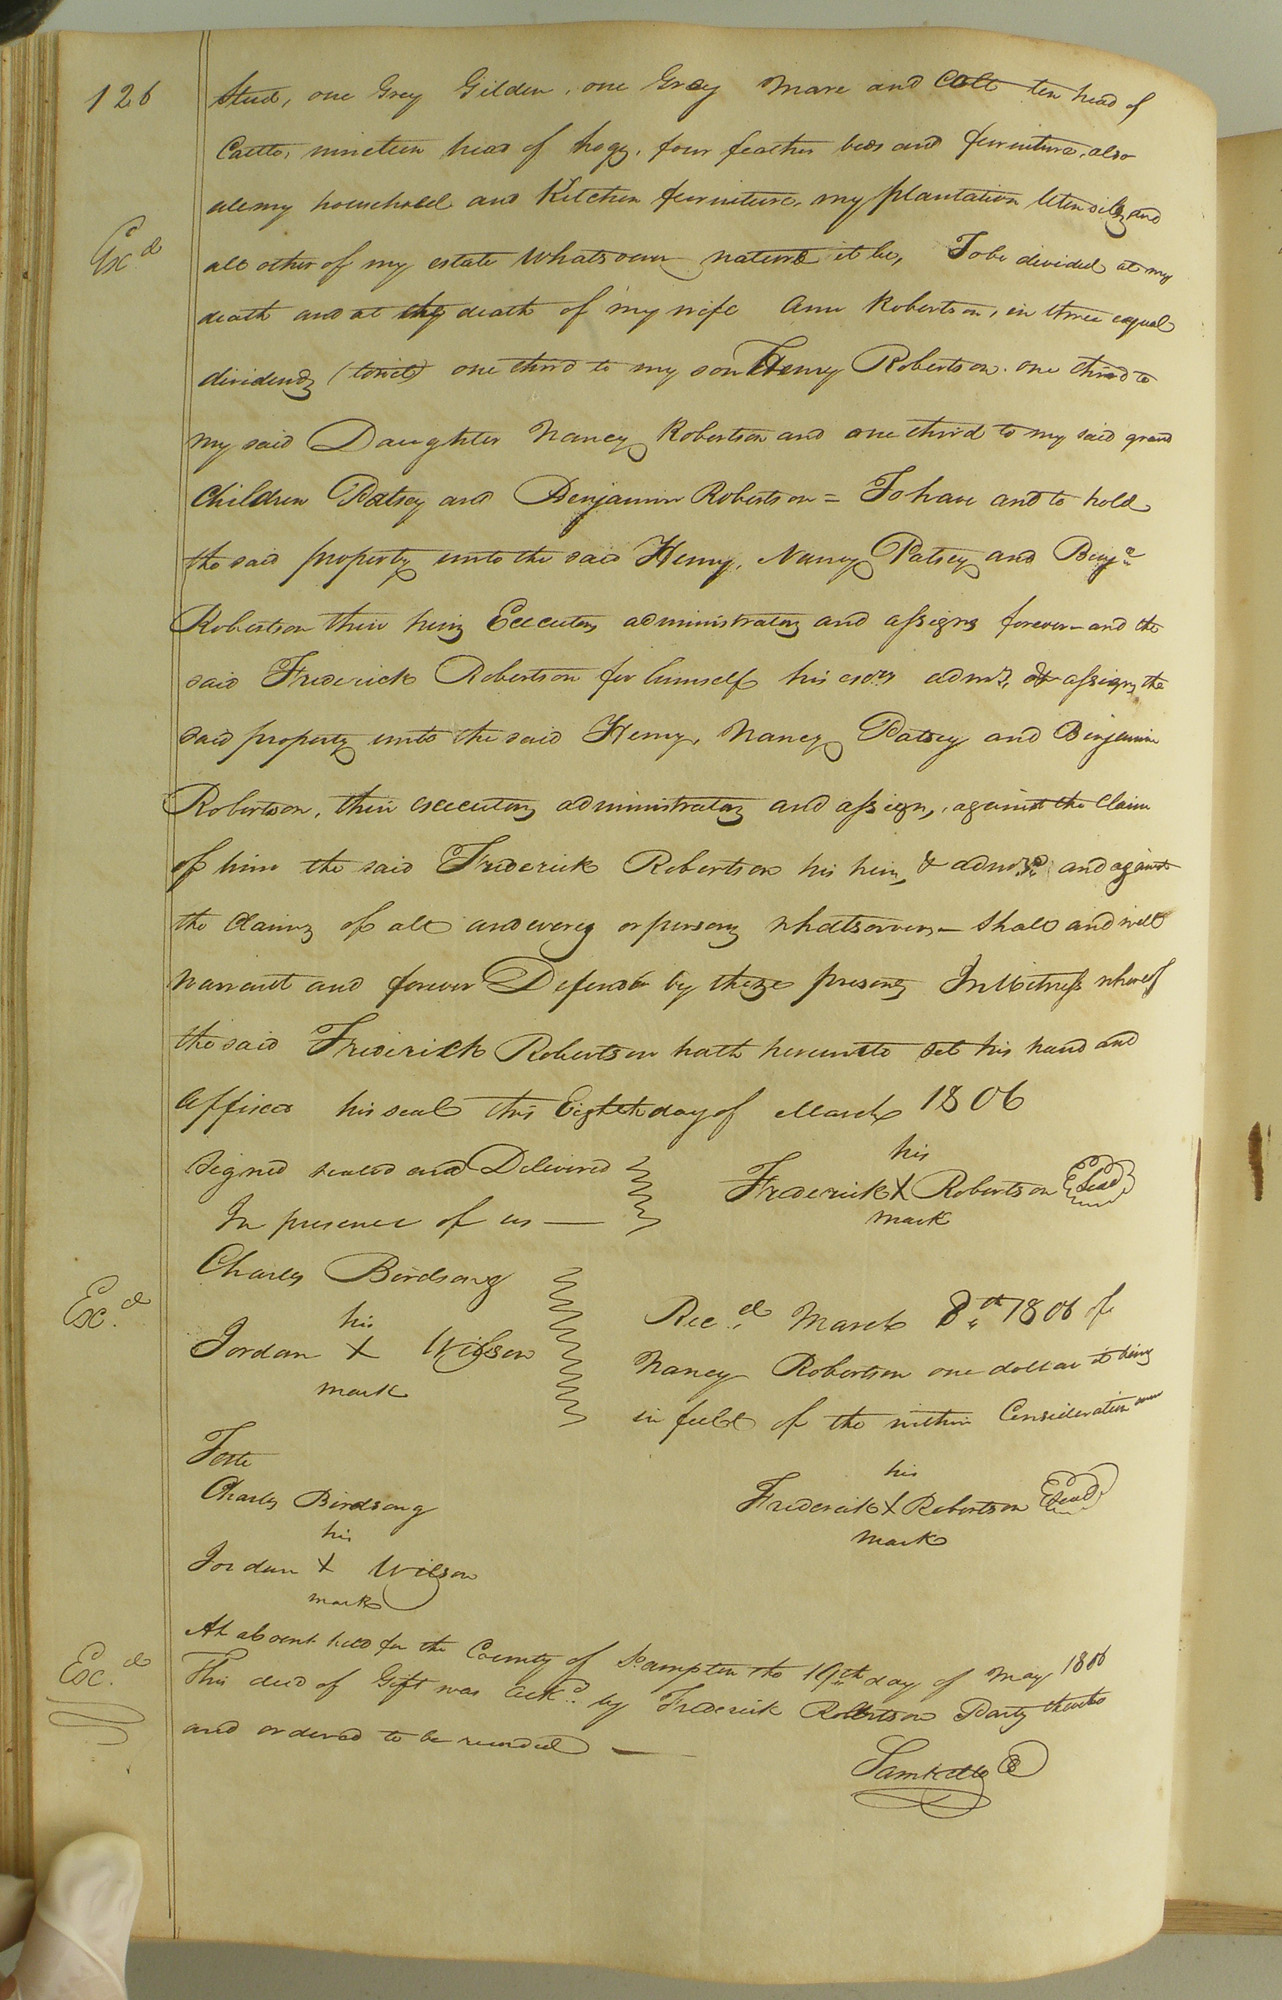 126
Stud, one Grey Gilden, one Gray Mare and Colt ten head of
Cattle, nineteen head of hogs, four feather beds and furniture, also
all my household and Kitchen furniture, my plantation Utensils, and
Exd
all other of my estate Whatsoever nature it be, To be divided at my
death and at the death of my wife Ann Robertson, in three equal
dividends (towit) one third to my son Henry Robertson. one third to
my said Daughter Nancy Robertson and one third to my said grand
Children Patsey and Benjamin Robertson = To have and to hold
the said property unto the said Henry, Nancy Patsey and Benja
Robertson their heirs Executors administrators and assigns forever – and the
said Frederick Robertson for himself his exors admrs, & assigns the
said property unto the said Henry, Nancy Patsey and Benjamin
Robertson, their executors administrators and assigns, against the Claim
of him the said Frederick Robertson his heirs, & admrs and against
the Claims of all and every or persons whatsoever, – Shall and will
warrant and forever Defend by these presents In Witness whereof
the said Friderick Robertson hath hereunto set his hand and
affixed his seal this Eighth day of March 1806
Signed sealed and Delivered
In presence of us —
his
Frederick X Robertson Seal
mark
Charles Birdsong
his
Jordan X Wilson
mark
Exd
Recd March 8th 1806 of
Nancy Robertson one dollar it being
in full of the within Consideration
Teste
Charles Birdsong
his
Jordan X Wilson
mark
his
Frederick X Robertson Seal
mark
Exd
At a Court held for the County of S.hampton the 19th day of May 1806
This deed of Gift was Ackd by Frederick Robertson Party thereto
and ordered to be recorded —